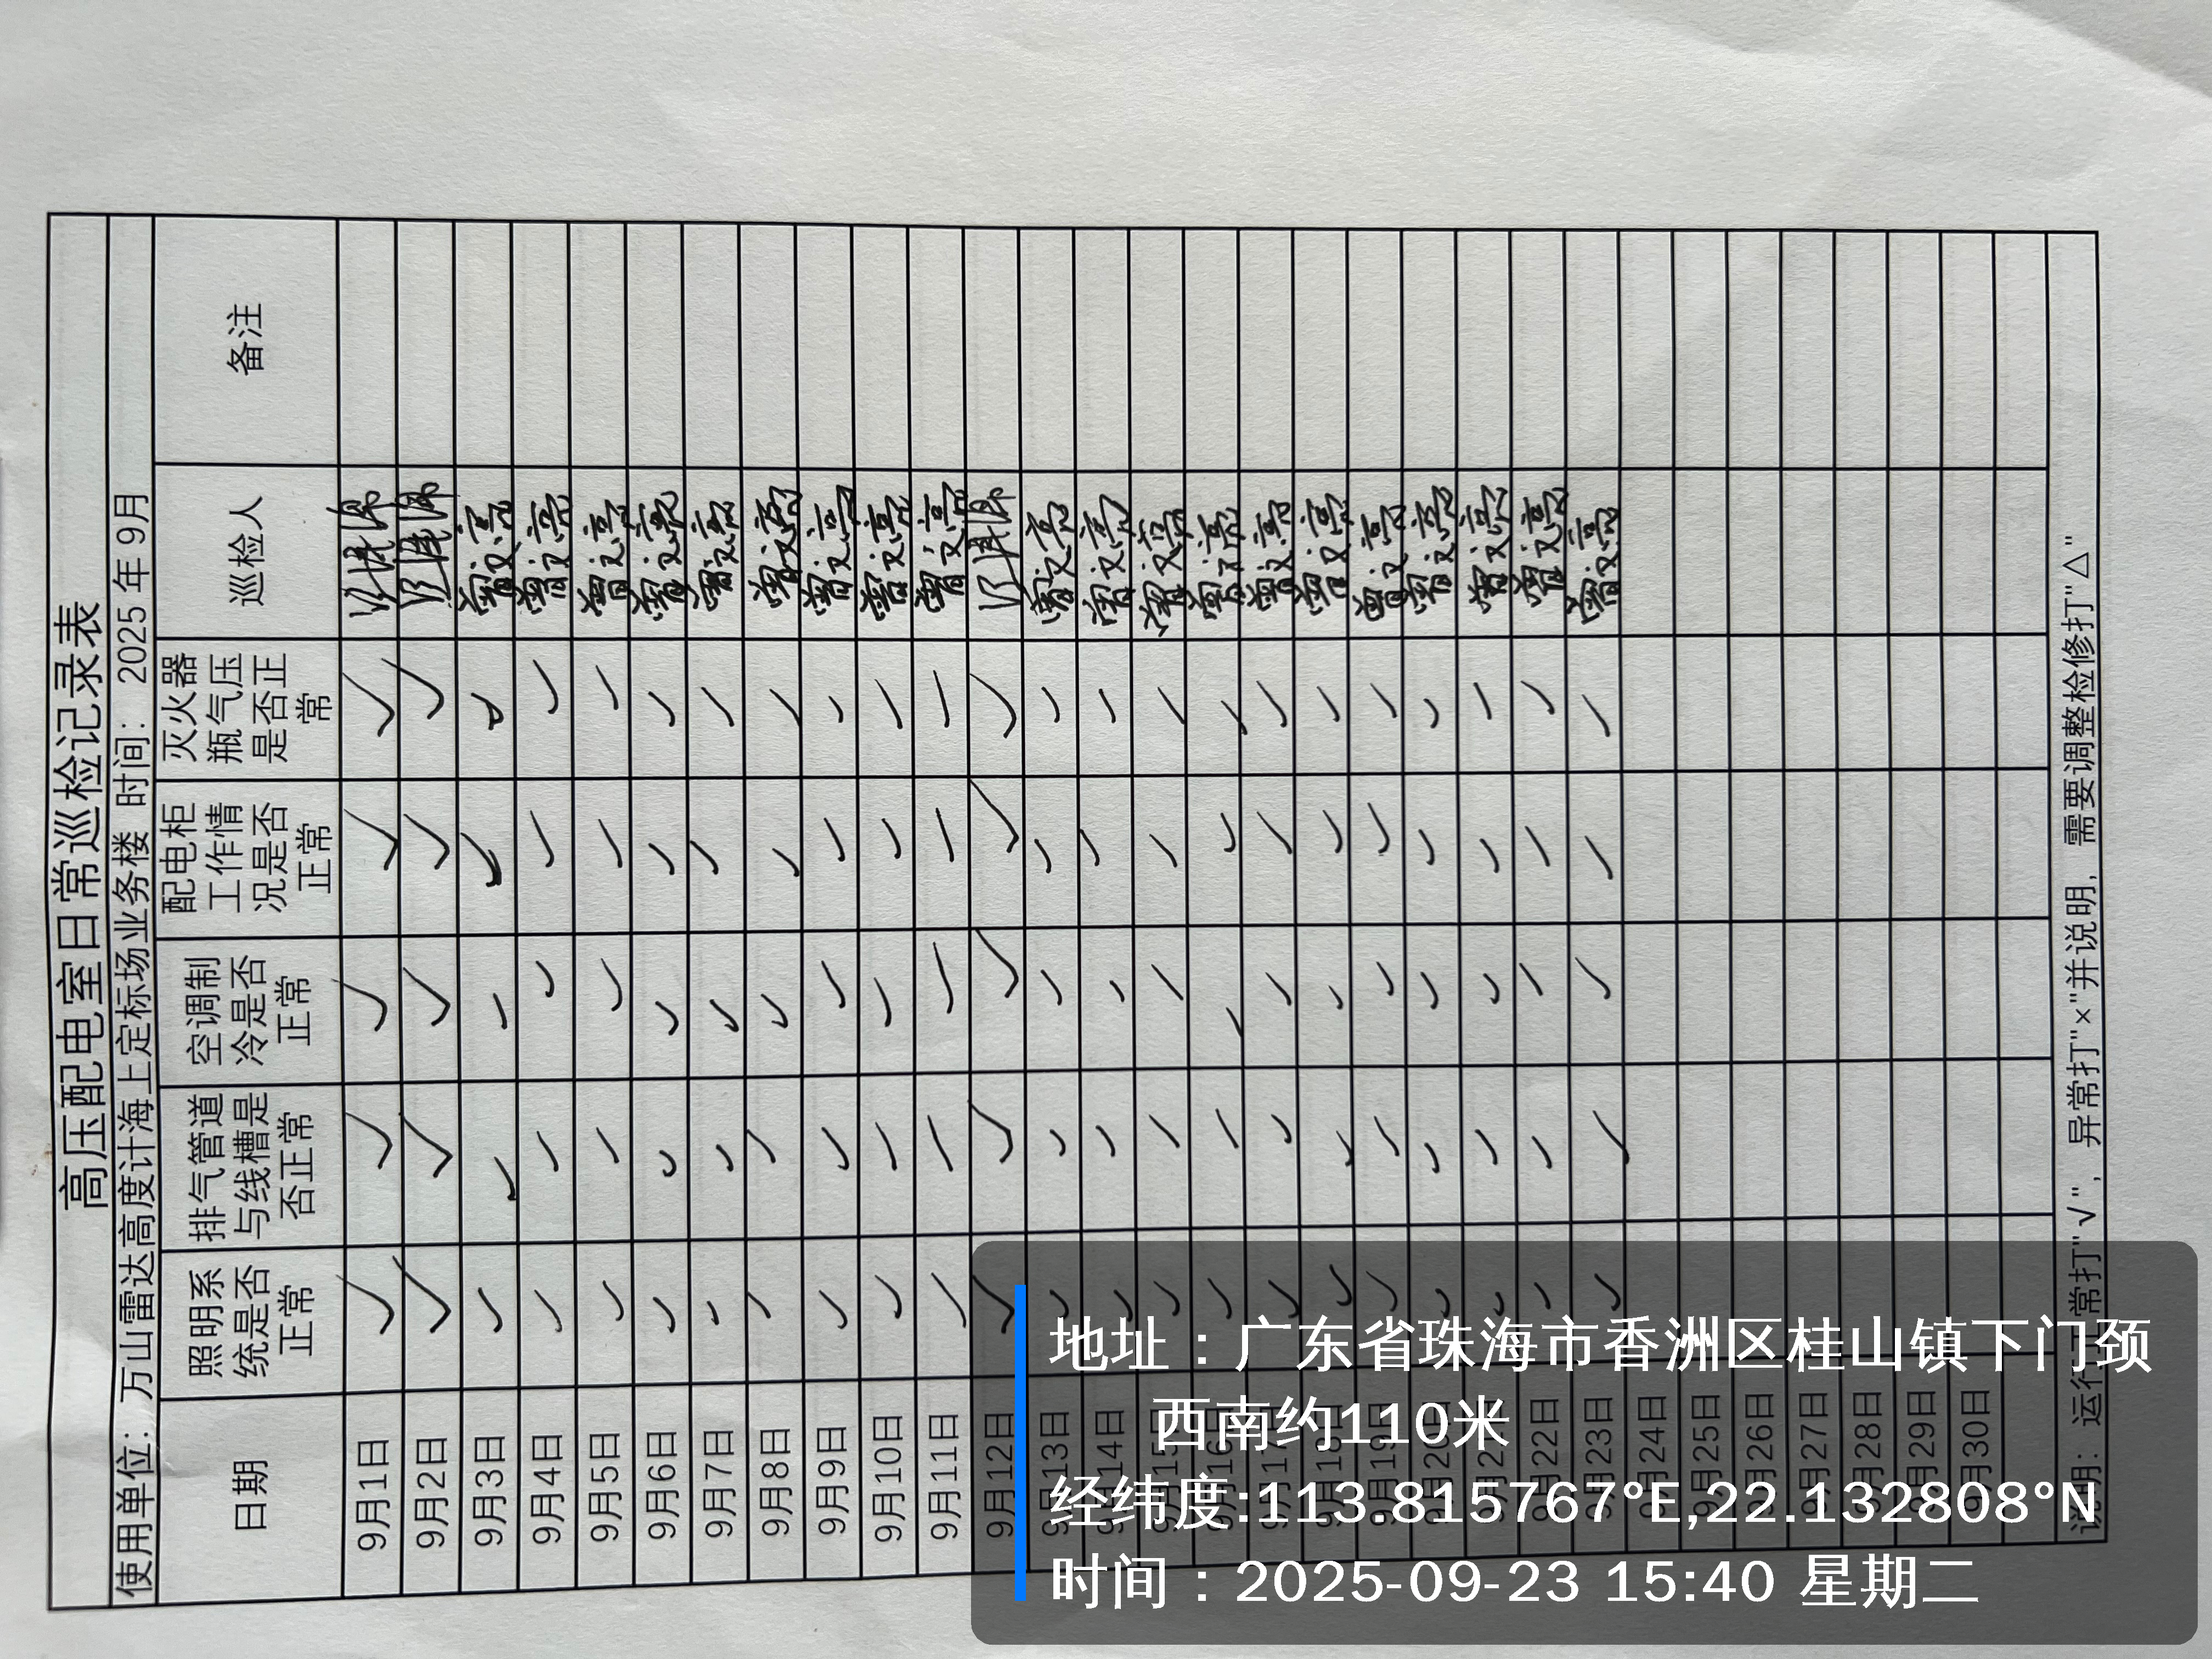 高压配电室日常巡检记录表
使用单位：万山雷达高度计海上定标场业务楼 时间：2025 年 9月
日期 照明系统是否正常 排气管道与线槽是否正常 空调制冷是否正常 配电柜工作情况是否正常 灭火器瓶气压是否正常 巡检人 备注
9月1日 ✓ ✓ ✓ ✓ ✓
9月2日 ✓ ✓ ✓ ✓ ✓
9月3日 ✓ ✓ ✓ ✓ ✓
9月4日 ✓ ✓ ✓ ✓ ✓
9月5日 ✓ ✓ ✓ ✓ ✓
9月6日 ✓ ✓ ✓ ✓ ✓
9月7日 ✓ ✓ ✓ ✓ ✓
9月8日 ✓ ✓ ✓ ✓ ✓
9月9日 ✓ ✓ ✓ ✓ ✓
9月10日 ✓ ✓ ✓ ✓ ✓
9月11日 ✓ ✓ ✓ ✓ ✓
9月12日 ✓ ✓ ✓ ✓ ✓
9月13日 ✓ ✓ ✓ ✓ ✓
9月14日 ✓ ✓ ✓ ✓ ✓
9月15日 ✓ ✓ ✓ ✓ ✓
9月16日 ✓ ✓ ✓ ✓ ✓
9月17日 ✓ ✓ ✓ ✓ ✓
9月18日 ✓ ✓ ✓ ✓ ✓
9月19日 ✓ ✓ ✓ ✓ ✓
9月20日 ✓ ✓ ✓ ✓ ✓
9月21日 ✓ ✓ ✓ ✓ ✓
9月22日 ✓ ✓ ✓ ✓ ✓
9月23日 ✓ ✓ ✓ ✓ ✓
9月24日
9月25日
9月26日
9月27日
9月28日
9月29日
9月30日
说明：运行正常打"√"，异常打"×"并说明，需要调整检修打"△"
地址：广东省珠海市香洲区桂山镇下门颈
西南约110米
经纬度:113.815767°E,22.132808°N
时间：2025-09-23 15:40 星期二